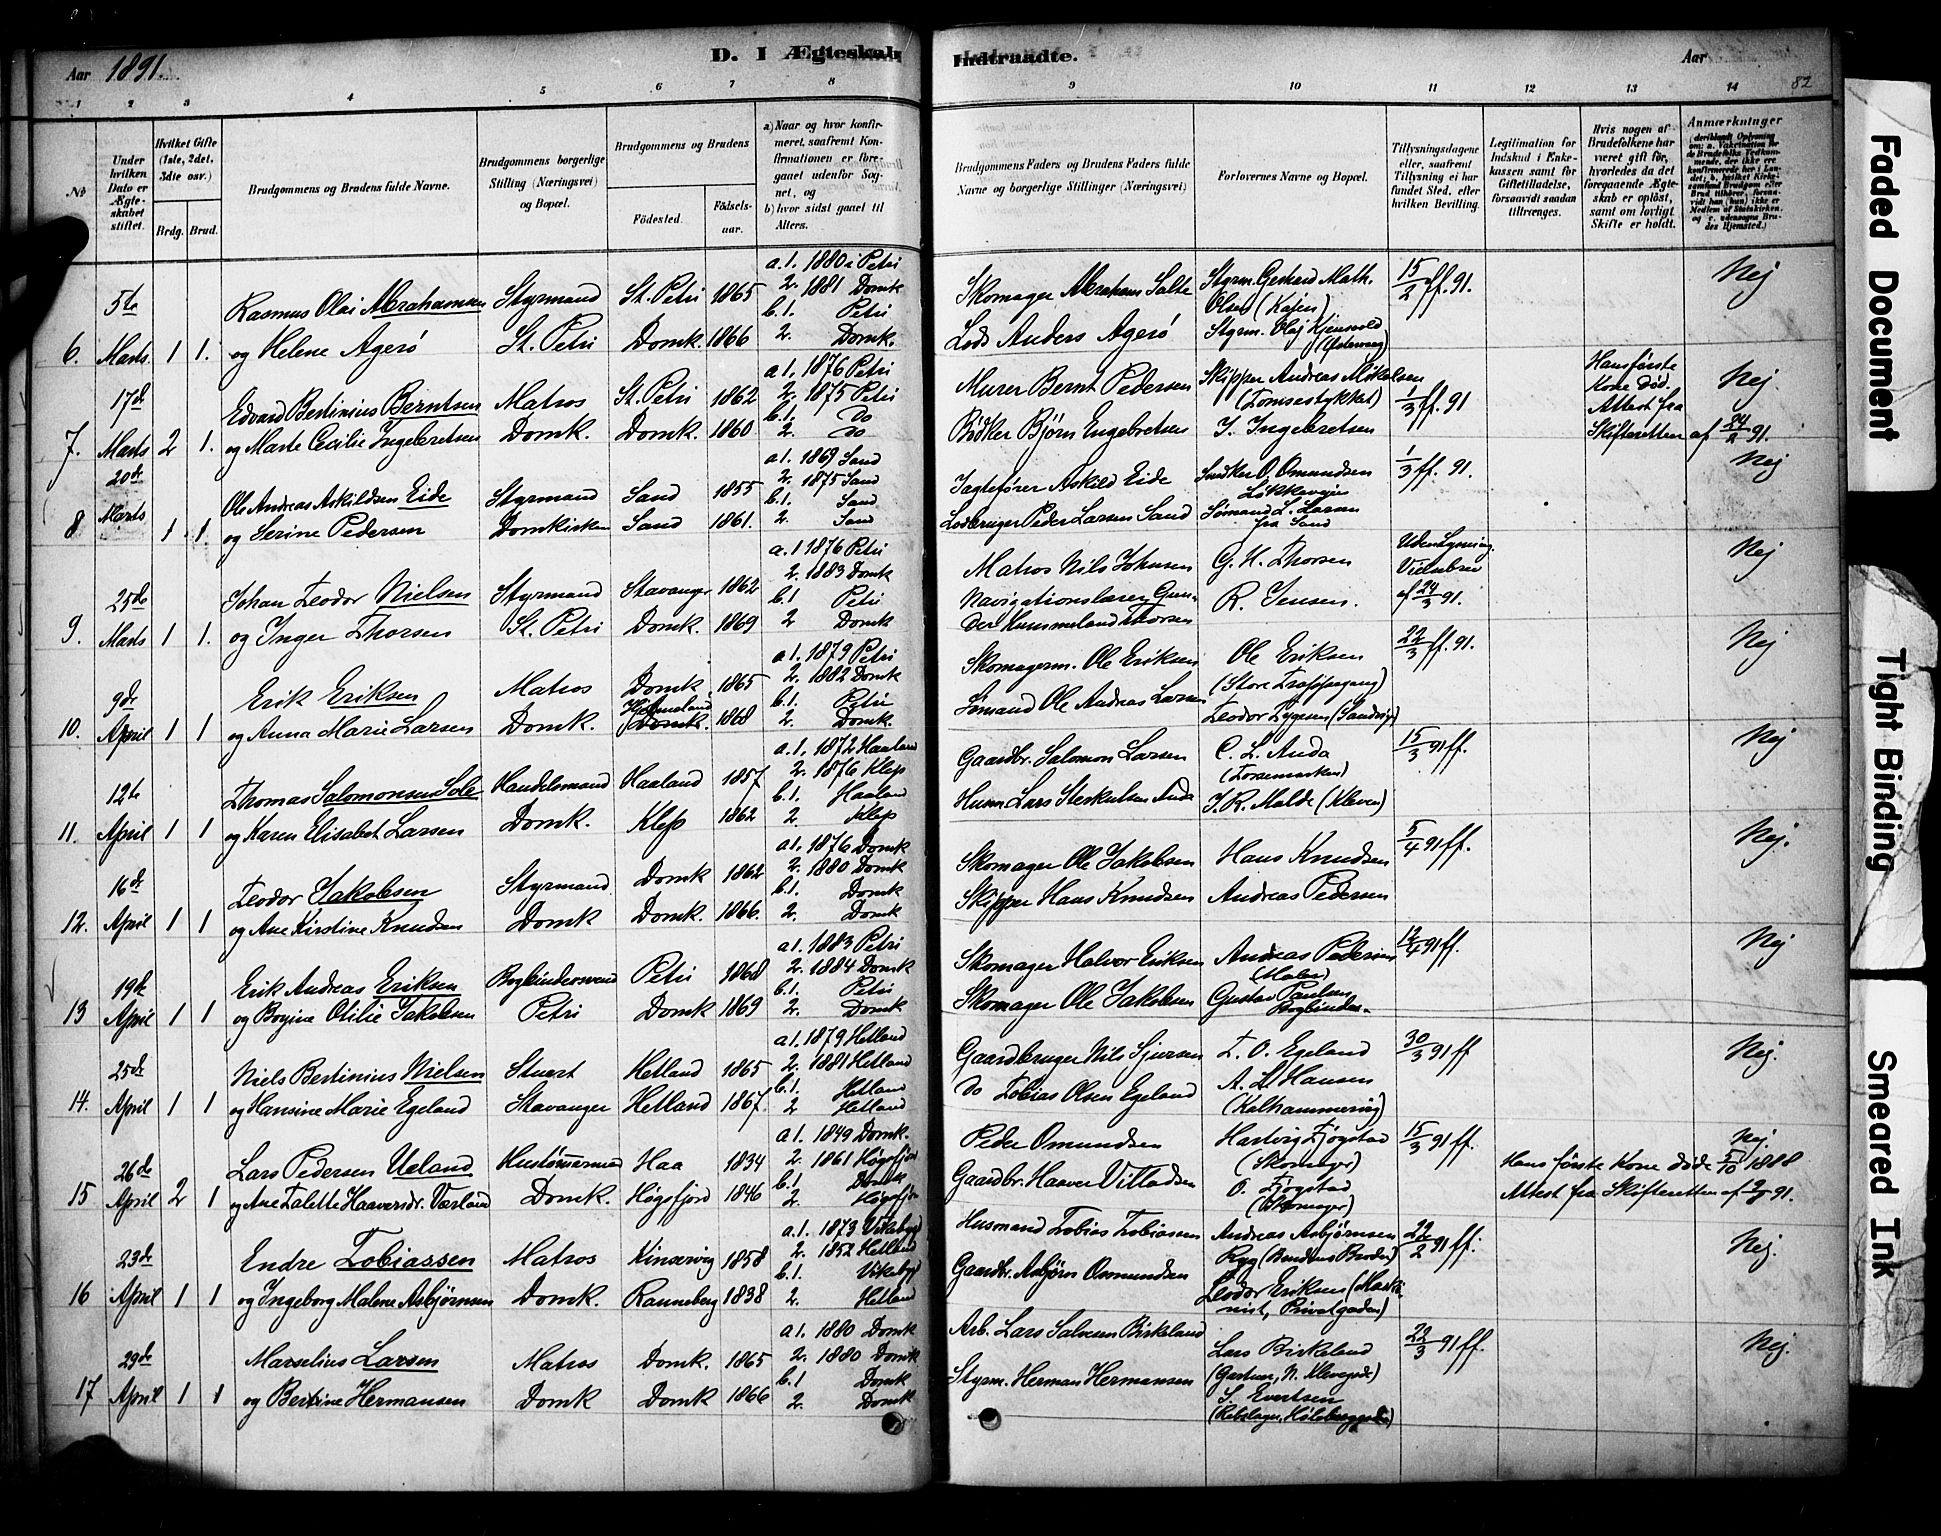 Aar 1891.
D. I Ægteskab Indtraadte.
Aar
82
1 2 3 4 5 6 7 8 9 10 11 12 13 14
No
Under hvilken Dato er Ægteskabet stiftet.
Hvilket Gifte (1ste, 2det, 3die osv.)
Brdg. Brud.
Brudgommens og Brudens fulde Navne.
Brudgommens borgerlige Stilling (Næringsvei) og Bopæl.
Brudgommens og Brudens
Fødested.
Fødselsaar.
a) Naar og hvor konfirmeret, saafremt Konfirmationen er foregaaet udenfor Sognet, og
b) hvor sidst gaaet til Alters.
Brudgommens Faders og Brudens Faders fulde Navne og borgerlige Stillinger (Næringsvei)
Forlovernes Navne og Bopæl.
Tillysningsdagene eller, saafremt Tillysning ei har fundet Sted, efter hvilken Bevilling.
Legitimation for Indskud i Enkekassen samt for Giftetilladelse, forsaavidt saadan tiltrænges.
Hvis nogen af Brudefolkene har været gift før, hvorledes da det foregaaende Ægteskab er opløst, samt om lovligt Skifte er holdt.
Anmærkninger
6. 5te Marts 1 1. Rasmus Olai Abrahamsen Styrmand St. Petri 1865 a. 1. 1880 i Petri
og Helene Agerø St. Petri Domk. 1866 2. 1881 Domk
b. 1. Petri
2. Domk.
Skomager Abraham Salte Styrm. Gerhard Math. Olsen 15/2 ff. 91. Nej
Lods Anders Agerø Styrm. Olaj
7. 17d Marts 2 1. Edvard Bertinius Berntsen Matros St. Petri 1862 a. 1. 1876 Petri
og Marte Cecilie Ingebretsen Domk. Domk. 1860 2. 1875 Petri
b. 1. Do
2. Do
Murer Bernt Pedersen Skipper Andreas Mikelsen 1/3 ff. 91 Nej
Bødker Bjørn Engebretsen I. Ingebretsen
Hans første Kone Død. Attest fra Skifteretten af 24/2 91.
8 20de Marts 1 1. Ole Andreas Askildsen Eide Styrmand Sand 1855 a. 1. 1869 Sand
og Serine Pedersen Domkirken Sand 1861. 2. 1875 Sand
b. 1. Sand
2. Sand
Jagtefører Askild Eide Snedker O. Omundsen Løkkeveien 1/3 ff. 91. Nej
Lodbruger Peder Larsen Sand Sømand L. Larsen fra Sand
9. 25de Marts 1 1. Johan Teodor Nielsen Styrmand Stavanger 1862 a. 1 1876 Petri
og Inger Thorsen St. Petri Domk. 1869 2. 1883 Domk
b. 1 Petri
2 Domk
Matros Nils Johnsen G. H. Thorsen Uden Lysning. Vielsebrev af 24/3 91. Nej
Navigationslærer Gunder Hummeland Thorsen R. Jensen.
10. 9de April 1 1 Erik Eriksen Matros Domk 1865 a 1. 1879 Petri
og Anna Marie Larsen Domk. Domk. 1868 2. 1882 Domk
b. 1. Petri
2. Domk.
Skomagerm. Ole Eriksen Ole Eriksen 22/3 ff. 91. Nej
Sømand Ole Andreas Larsen Teodor
11. 12te April 1 1 Thomas Salomonsen Sole Handelsmand Haaland 1857 a. 1. 1872 Haaland
og Karen Elisabet Larsen Domk. Klep 1862 2. 1876 Klep
b. 1. Haaland
2. Klep
Gaardbr. Salomon Larsen C. L. Anda 15/3 91 ff. Nej
Husm. Lars Anda T. R. Malde (Kleven)
12. 16de April 1 1 Teodor Jakobsen Styrmand Domk 1862 a 1. 1876 Domk
og Ane Kirstine Knudsen Domk Domk. 1866. 2. 1880 Domk
b. 1. Domk
2. Domk
Skomager Ole Jakobsen Hans Knudsen 5/4 91 ff. Nej.
Skipper Hans Knudsen Andreas Pedersen
13 19de April 1 1 Erik Andreas Eriksen Bogbindersvend Petri 1868 a 1. 1883 Petri
og Bogine Otilie Jakobsen Petri Domk 1869 2. 1884 Domk
b. 1. Petri
2. Domk
Skomager Halvor Eriksen Andreas Pedersen (Maler) 12/4 91 ff. Nej
Skomager Ole Jakobsen Gustav Paulsen Bogbinder
14. 25de April 1 1 Niels Bertinius Nielsen Stuert Hetland 1865 a 1. 1879 Hetland
og Hansine Marie Egeland Stavanger Hetland 1867. 2. 1881 Hetland
b. 1. Hetland
2 Hetland
Gaardbruger Nils Sjursen T. O. Egeland 30/3 91 ff Nej.
do Tobias Olsen Egeland A. L. Hansen (Kalhammeren)
15 26de April 2 1 Lars Pedersen Ueland Hustømmermand Haa 1834 a 1. 1849 Domk.
og Ane Talette Haaversdr. Værland Domk. Høgsfjord 1846 2. 1861 Høgsfjord
b. 1 Domk
2. Høgsfjord
Peder Omundsen Hartvig Fjøgstad (Skomager) 15/3 91 ff. Nej.
Gaardbr. Haaver Villadsen O. Fjøgstad (Skomager)
Hans første Kone døde 5/10 1888 Attest fra Skifteretten af 91.
16 23de April 1 1 Endre Tobiassen Matros Kinservig 1858 a. 1. 1873
og Ingeborg Malene Asbjørnsen Domk. Ranneberg 1838 2. 1852 Hetland
b. 1.
2. Hetland
Husmand Tobias Tobiassen Andreas Asbjørnsen Ryg (Brudens Broder) 22/2 91 ff. Nej.
Gaardbr. Asbjørn Osmundsen Teodor Eriksen (Maskinist, Privatgaden)
17 29de April 1 1 Marselius Larsen Matros Domk. 1865 a 1. 1880 Domk
og Bertine Hermansen Domk Domk 1866 2. 1880 Domk
b. 1 Domk
2. Domk
Arb. Lars Salvesen Birkeland Lars Birkeland 22/3 91 ff. Nej.
Styrm. Herman Hermansen S. Evertsen
Faded Document
Tight Binding
Smeared Ink